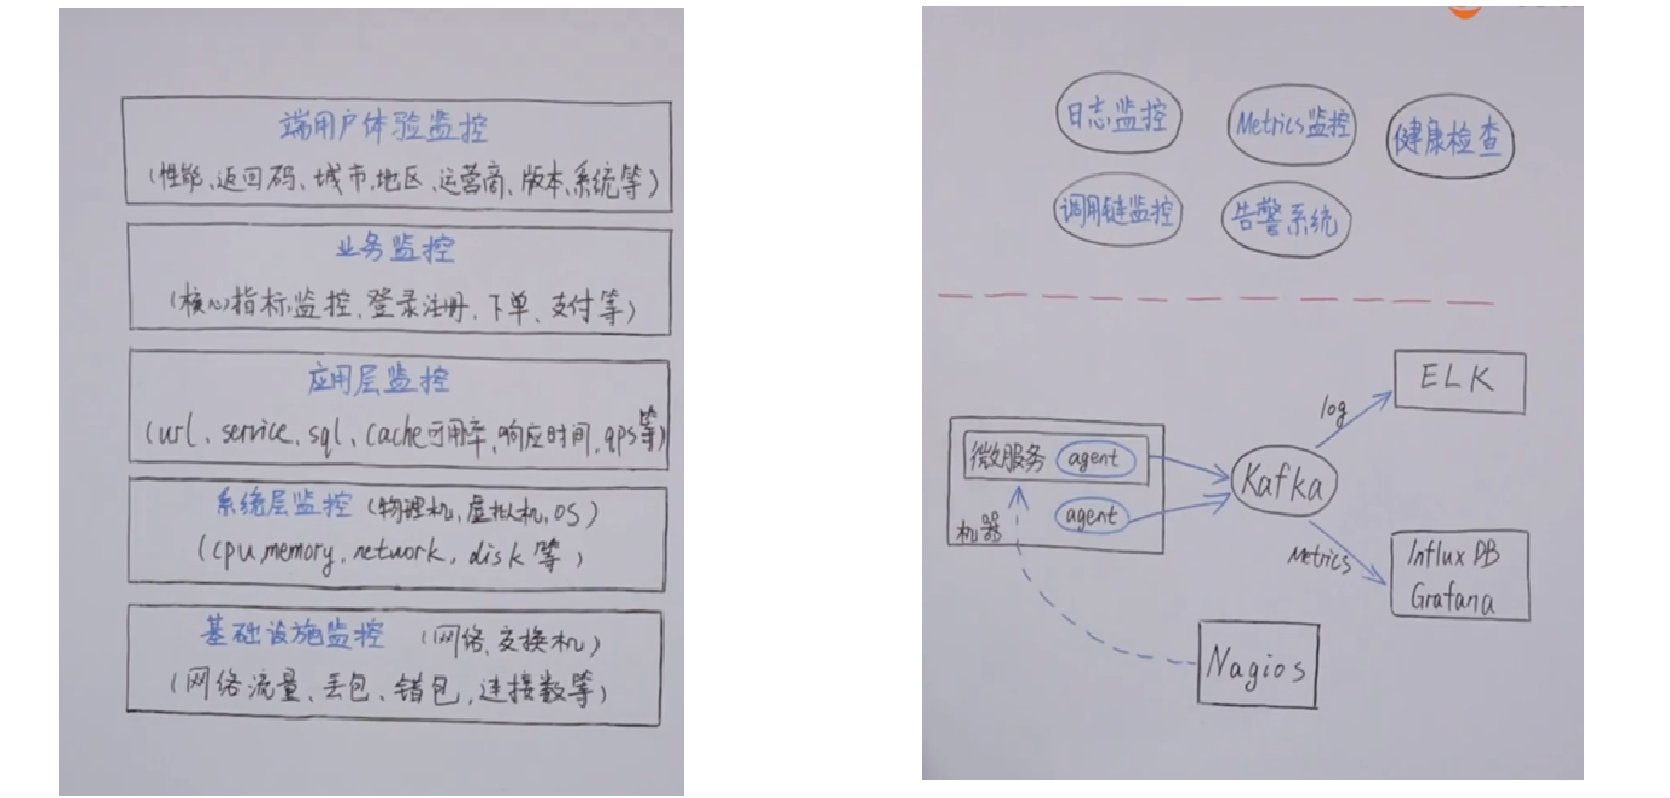 端用户体验监控
(性能、返回码、城市、地区、运营商、版本、系统等)
业务监控
(核心指标监控、登录注册、下单、支付等)
应用层监控
(url、service、sql、cache可用率、响应时间、qps等)
系统层监控 (物理机、虚拟机、OS)
(cpu、memory、network、disk等)
基础设施监控 (网络、交换机)
(网络流量、丢包、错包、连接数等)
日志监控
Metrics监控
健康检查
调用链监控
告警系统
ELK
log
微服务 agent
Kafka
agent
机器
Metrics
InfluxDB
Grafana
Nagios